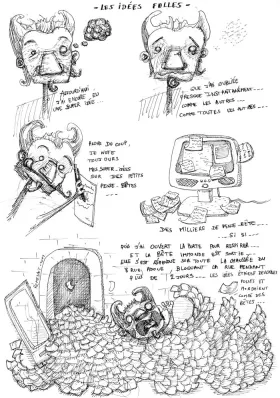 - LES IDÉES FOLLES -
AUJOURD'HUI
J'AI ENCORE EU
UNE SUPER IDÉE...
QUE J'AI OUBLIÉ
PRESQUE INSTANTANÉMENT...
COMME LES AUTRES...
COMME TOUTES LES AUTRES...
ALORS DU COUP,
JE NOTE
TOUJOURS
MES SUPER IDÉES
SUR DES PETITS
PENSE-BÊTES
DES MILLIERS DE PENSE BÊTE...
SI SI...
J'AI OUVERT LA PORTE POUR RESPIRER...
ET LA BÊTE IMMONDE EST SORTIE...
ELLE S'EST RÉPANDUE SUR TOUTE LA CHAUSSÉE DU
BLOQUANT MA RUE PENDANT
PLUS DE 2 JOURS... LES IDÉES ÉTAIENT DEVENUES
FOLLES ET
COMME DES
BÊTES...